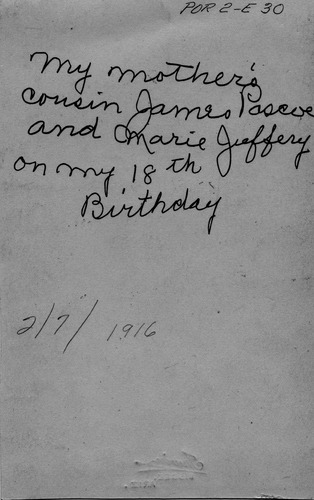 POR 2-E 30
My mother's
cousin James Pascoe
and Marie Juffery
on my 18th
Birthday
2/7/1916